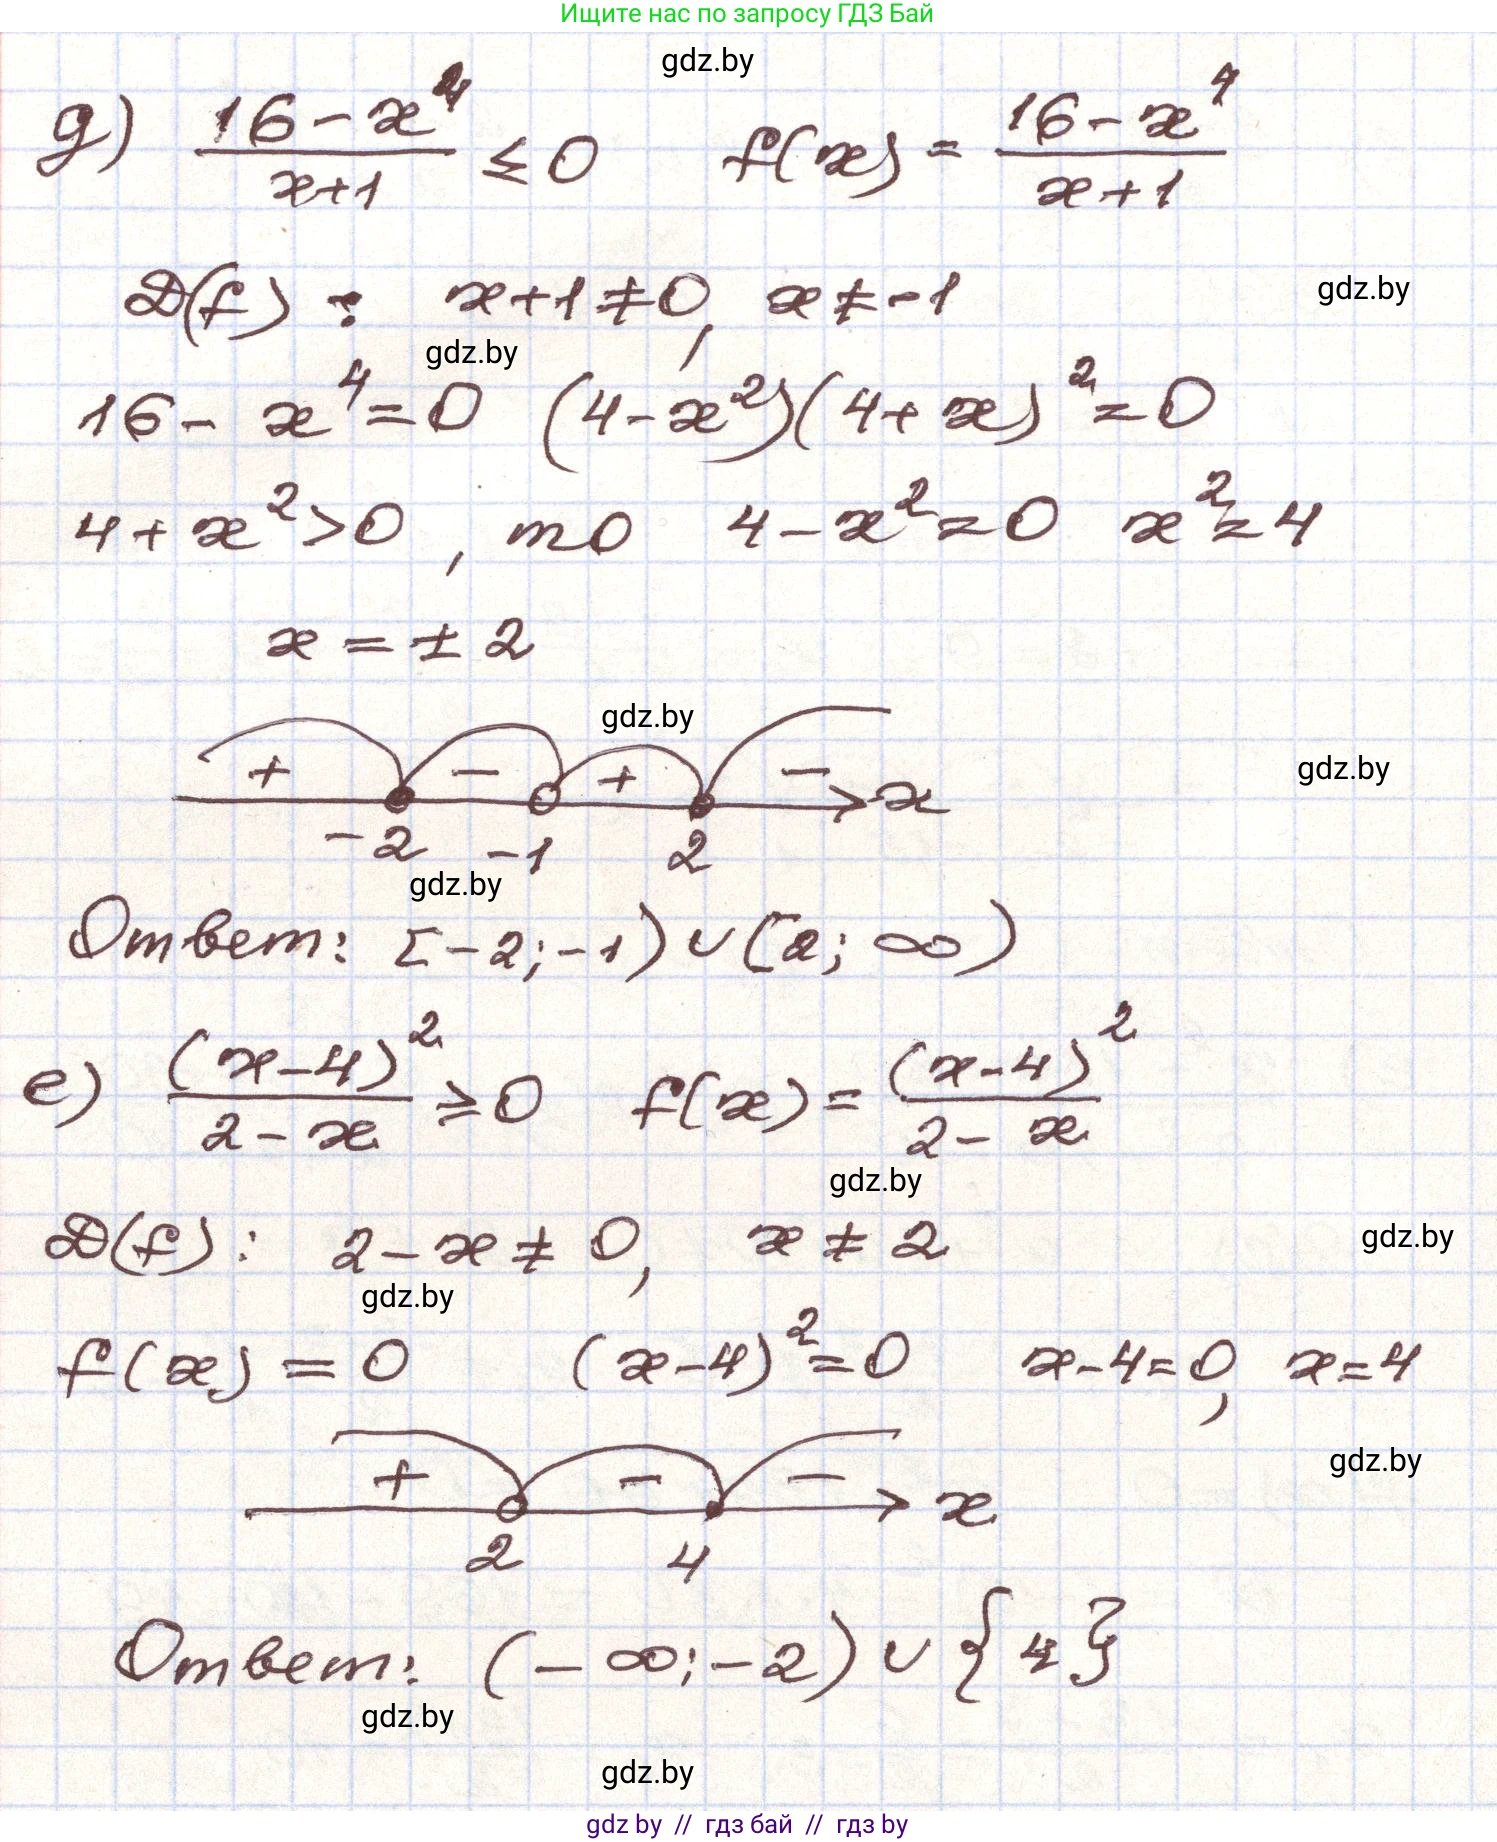 Ищите нас по запросу ГДЗ Бай
gdz.by
д) (16-x⁴)/(x+1) ≤ 0 f(x) = (16-x⁴)/(x+1)
D(f) : x+1≠0, x≠-1
gdz.by
gdz.by
16-x⁴=0 (4-x²)(4+x)²=0
4+x²>0, то 4-x²=0 x²=4
x = ±2
gdz.by
+ - + - x
gdz.by
-2 -1 2
gdz.by
Ответ: [-2;-1)∪[2;∞)
е) (x-4)²/(2-x) ≥ 0 f(x) = (x-4)²/(2-x)
gdz.by
D(f): 2-x≠0, x≠2
gdz.by
gdz.by
f(x)=0 (x-4)²=0 x-4=0, x=4
gdz.by
+ - - x
2 4
Ответ: (-∞;-2)∪{4}
gdz.by
gdz.by
gdz by // гдз бай // гдз by